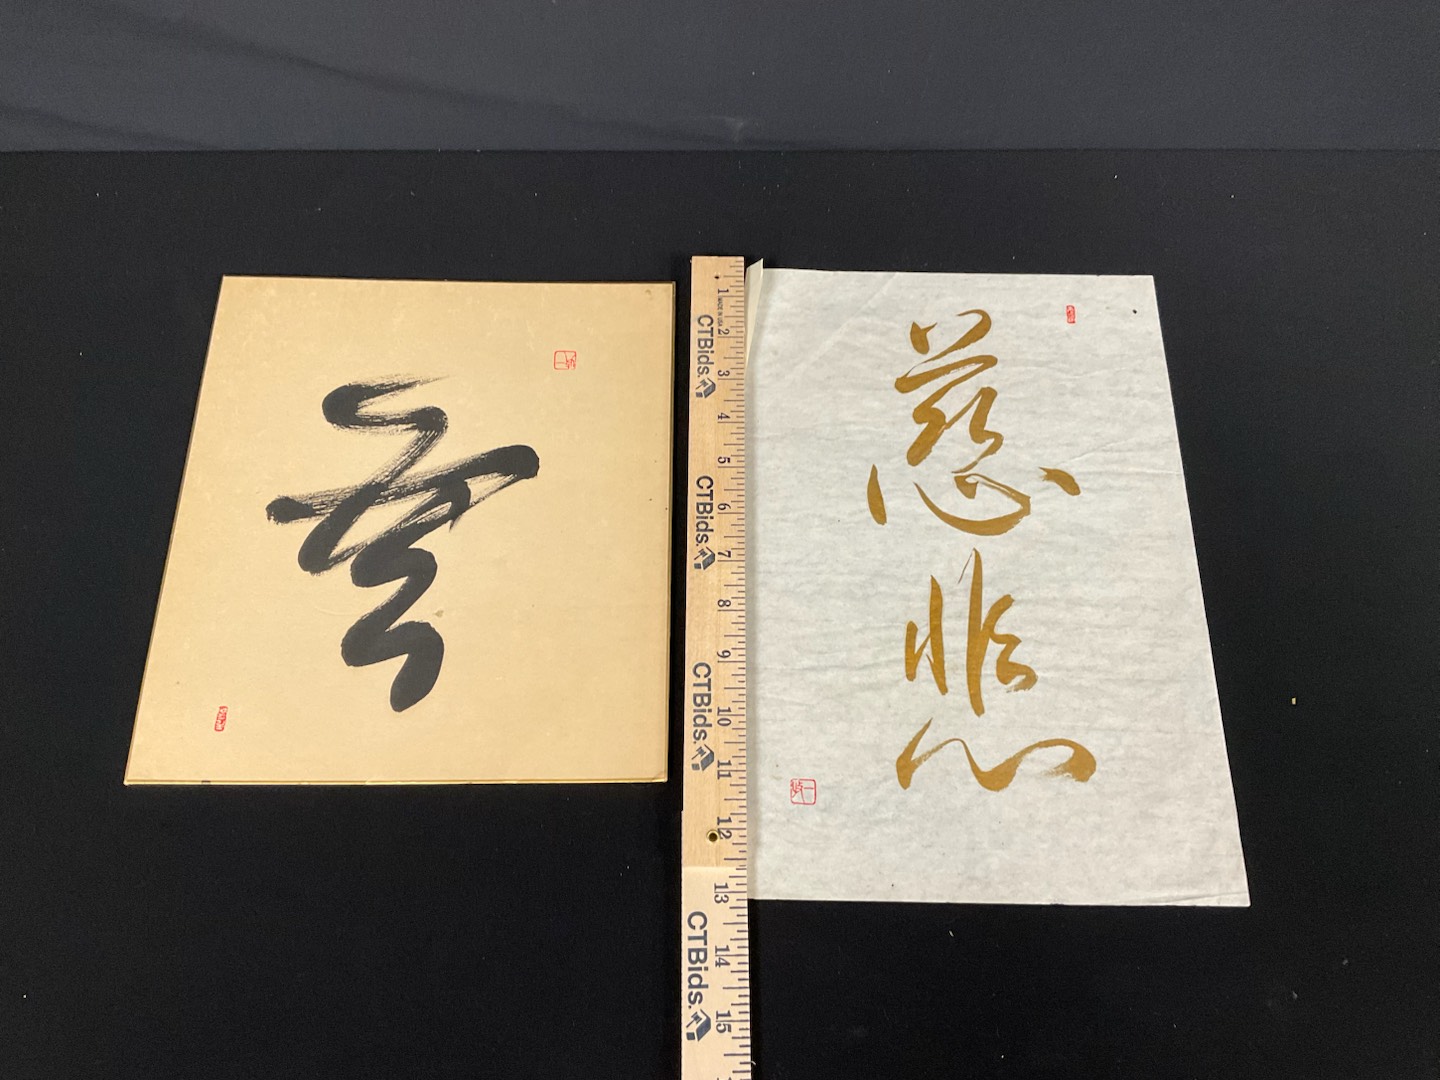 慈悲
1 2 3 4 5 6 7 8 9 10 11 12 13 14 15
MADE IN USA
CTBids.
CTBids.
CTBids.
CTBids.